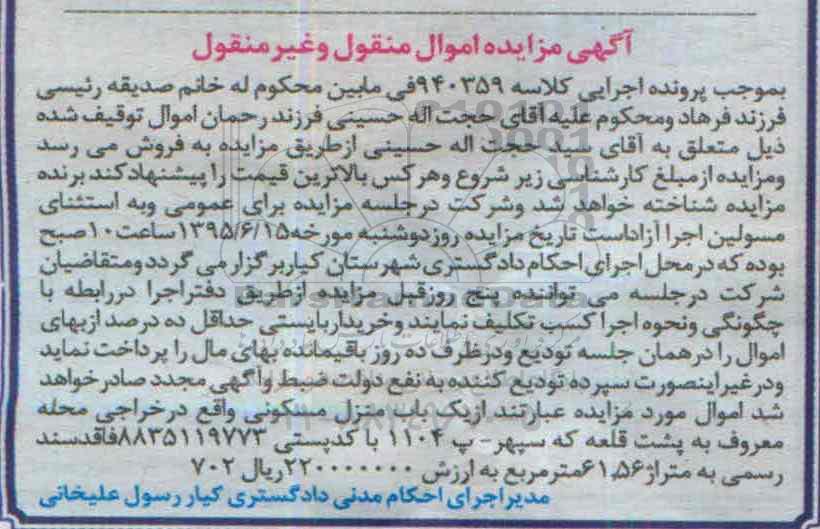 آگهی مزایده اموال منقول وغیر منقول
بموجب پرونده اجرایی کلاسه ۹۴۰۳۵۹فی مابین محکوم له خانم صدیقه رئیسی
فرزند فرهاد ومحکوم علیه آقای حجت اله حسینی فرزند رحمان اموال توقیف شده
ذیل متعلق به آقای سید حجت اله حسینی ازطریق مزایده به فروش می رسد
ومزایده از مبلغ کارشناسی زیر شروع وهر کس بالاترین قیمت را پیشنهاد کند برنده
مزایده شناخته خواهد شد وشرکت درجلسه مزایده برای عمومی وبه استثنای
مسولین اجرا آزاداست تاریخ مزایده روزدوشنبه مورخه۱۳۹۵/۶/۱۵ساعت۱۰صبح
بوده که در محل اجرای احکام دادگستری شهرستان کیاربرگزار می گردد ومتقاضیان
شرکت درجلسه می تواننده پنج روزقبل مزایده ازطریق دفتراجرا دررابطه با
چگونگی ونحوه اجرا کسب تکلیف نمایند وخریداربایستی حداقل ده درصد ازبهای
اموال را در همان جلسه تودیع ودرظرف ده روز باقیمانده بهای مال را پرداخت نماید
ودر غیر اینصورت سپرده تودیع کننده به نفع دولت ضبط وآگهی مجدد صادر خواهد
شد اموال مورد مزایده عبارتند ازیک باب منزل مسکونی واقع درخراجی محله
معروف به پشت قلعه که سپهر- پ ۱۱۰۴ با کدپستی ۸۸۳۵۱۱۹۷۷۳فاقدسند
رسمی به متراژ۶۱,۵۶مترمربع به ارزش ۲۲۰۰۰۰۰۰۰ریال ۷۰۲
مدیراجرای احکام مدنی دادگستری کیار رسول علیخانی